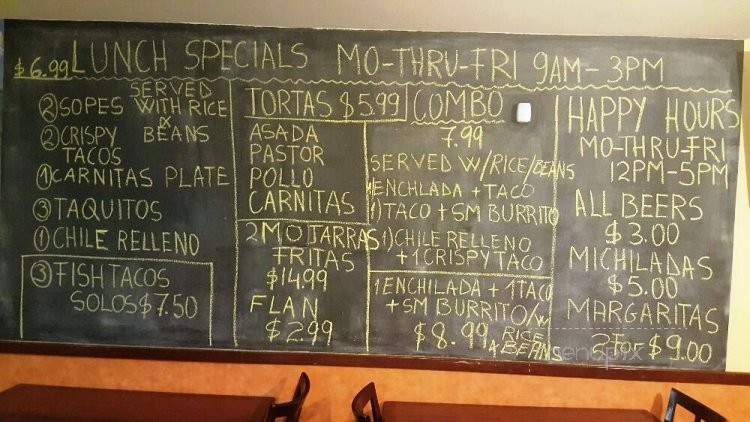 $6.99 LUNCH SPECIALS MO-THRU-FRI 9AM-3PM
SERVED
②SOPES WITH RICE
&
②CRISPY BEANS
TACOS
①CARNITAS PLATE
③TAQUITOS
①CHILE RELLENO
③FISH TACOS
SOLOS $7.50
TORTAS $5.99
ASADA
PASTOR
POLLO
CARNITAS
2 MOJARRAS
FRITAS
$14.99
FLAN
$2.99
COMBO
7.99
SERVED W/RICE/BEANS
1ENCHLADA + TACO
1)TACO + SM BURRITO
1)CHILE RELLENO
+1 CRISPY TACO
1ENCHILADA + 1TACO
+ SM BURRITO/W
$8.99 RICE
& BEANS
HAPPY HOURS
MO-THRU-FRI
12PM-5PM
ALL BEERS
$3.00
MICHILADAS
$5.00
MARGARITAS
2 FOR $9.00